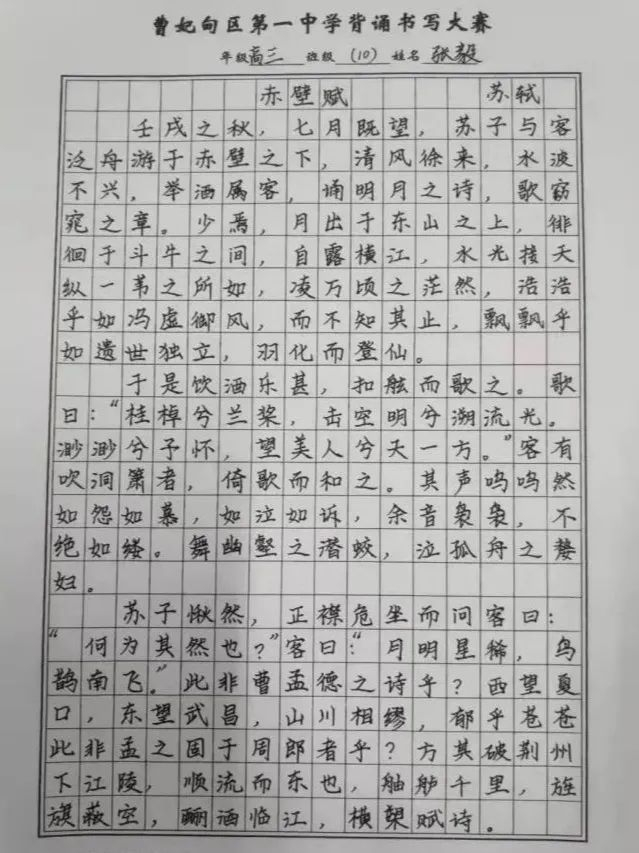 曹妃甸区第一中学背诵书写大赛
年级高三 班级(10) 姓名张毅
赤壁赋 苏轼
壬戌之秋，七月既望，苏子与客
泛舟游于赤壁之下，清风徐来，水波
不兴，举酒属客，诵明月之诗，歌窈
窕之章。少焉，月出于东山之上，徘
徊于斗牛之间，白露横江，水光接天
纵一苇之所如，凌万顷之茫然，浩浩
乎如冯虚御风，而不知其止，飘飘乎
如遗世独立，羽化而登仙。
于是饮酒乐甚，扣舷而歌之。歌
曰：“桂棹兮兰桨，击空明兮溯流光。
渺渺兮予怀，望美人兮天一方。”客有
吹洞箫者，倚歌而和之。其声呜呜然
如怨如慕，如泣如诉，余音袅袅，不
绝如缕。舞幽壑之潜蛟，泣孤舟之嫠
妇。
苏子愀然，正襟危坐而问客曰：
“何为其然也？”客曰：“月明星稀，乌
鹊南飞。”此非曹孟德之诗乎？西望夏
口，东望武昌，山川相缪，郁乎苍苍
此非孟之困于周郎者乎？方其破荆州
下江陵，顺流而东也，舳舻千里，旌
旗蔽空，酾酒临江，横槊赋诗。